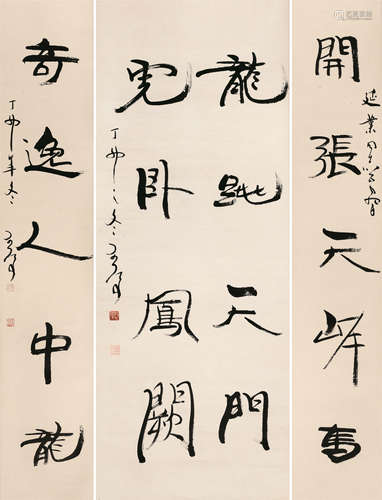 開張天岸馬
延業
龍跳天門
虎卧鳳闕
丁丑之冬
奇逸人中龍
丁丑年冬